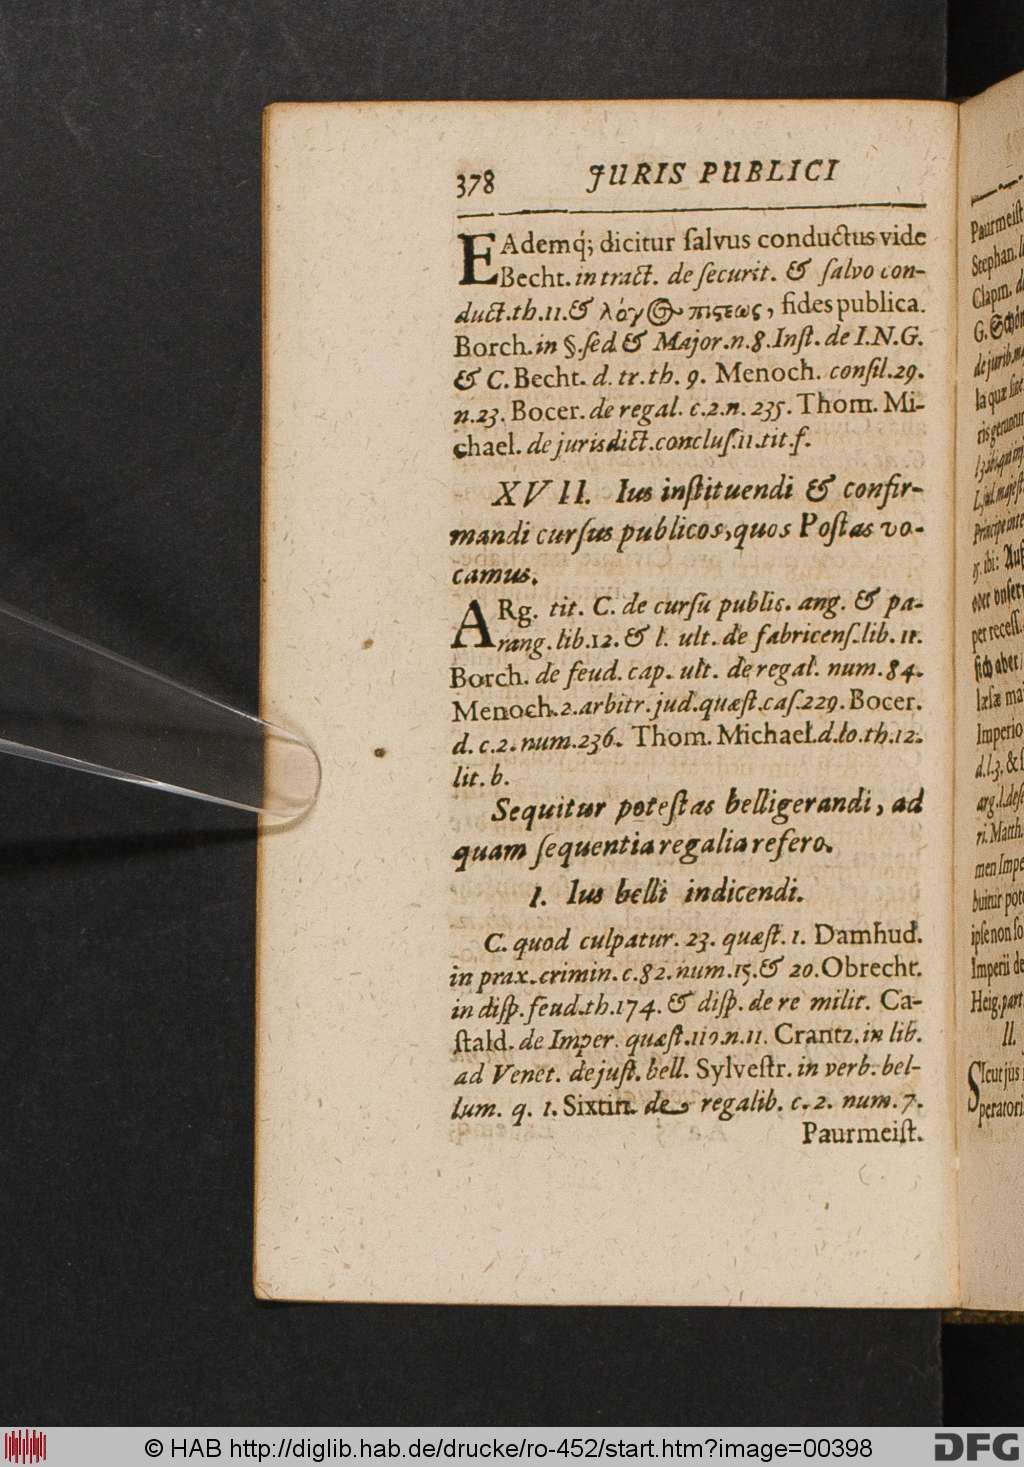 378 JURIS PUBLICI
EAdemq́; dicitur ſalvus conductus vide
Becht. in tract. de ſecurit. & ſalvo con-
duct. th. 11. & λόγος πίςεως, fides publica.
Borch. in §. ſed & Major. n. 8. Inſt. de I. N. G.
& C. Becht. d. tr. th. 9. Menoch. conſil. 29.
n. 23. Bocer. de regal. c. 2. n. 235. Thom. Mi-
chael. de jurisdict. concluſ. 11. tit. f.
XVII. Ius inſtituendi & confir-
mandi curſus publicos, quos Poſtas vo-
camus.
ARg. tit. C. de curſu public. ang. & pa-
rang. lib. 12. & l. ult. de fabricenſ. lib. 11.
Borch. de feud. cap. ult. de regal. num. 84.
Menoch. 2. arbitr. jud. quæſt. caſ. 229. Bocer.
d. c. 2. num. 236. Thom. Michael. d. lo. th. 12.
lit. b.
Sequitur poteſtas belligerandi, ad
quam ſequentia regalia refero.
I. Ius belli indicendi.
C. quod culpatur. 23. quæſt. 1. Damhud.
in prax. crimin. c. 82. num. 15. & 20. Obrecht.
in diſp. feud. th. 174. & diſp. de re milit. Ca-
ſtald. de Imper. quæſt. 110. n. 11. Crantz. in lib.
ad Venet. de juſt. bell. Sylveſtr. in verb. bel-
lum. q. 1. Sixtin. de regalib. c. 2. num. 7.
Paurmeiſt.
Paurmeiſt
Stephan.
Clapm.
G. Schön
de jurib.
la quæ
Principe
oder
per receſſ.
ſich aber
læſæ ma
Imperio
d. l. 3. &
ri. Matth.
men Impe
buitur pot
ipſe non ſo
Imperii de
Heig. part
II.
SIcut jus
perator
© HAB http://diglib.hab.de/drucke/ro-452/start.htm?image=00398
DFG